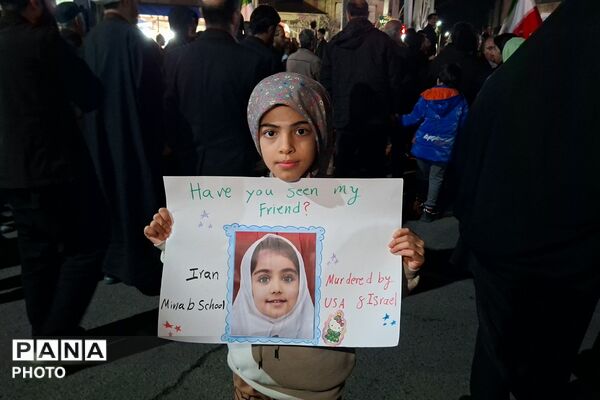 Have you seen my
Friend?
Iran
Minab School
Murdered by
USA & Israel
PANA
PHOTO